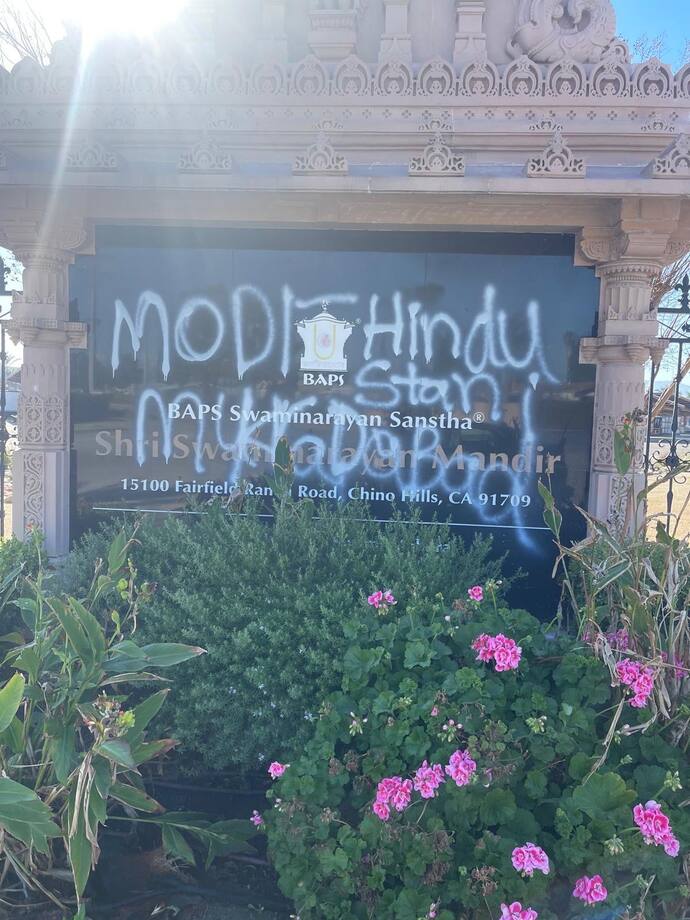 MODI Hindu
Stani
MURDABAD
BAPS
BAPS Swaminarayan Sanstha®
Shri Swaminarayan Mandir
15100 Fairfield Ranch Road, Chino Hills, CA 91709